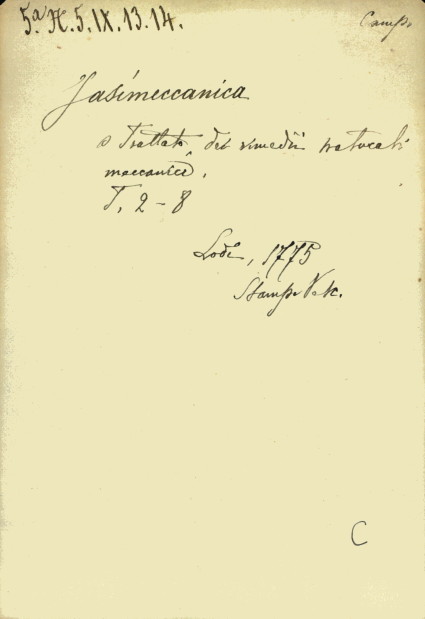 5.ª H. 5. IX. 13. 14.
Camp.
Jasimeccanica
o Trattato dei rimedii naturali
meccanici.
T. 2 - 8
Lodi, 1775
Stamp.
C